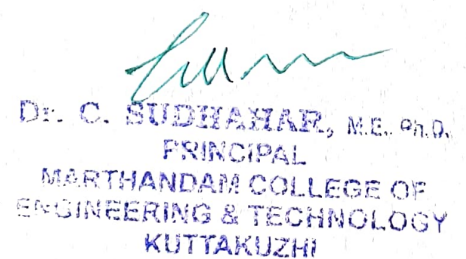 Dr. C. SUDHAHAR, M.E. Ph.D.
PRINCIPAL
MARTHANDAM COLLEGE OF
ENGINEERING & TECHNOLOGY
KUTTAKUZHI